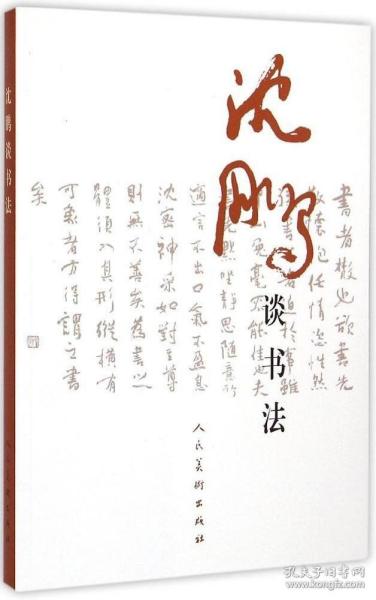 沈鹏谈书法
人民美术出版社
沈鹏
谈书法
書者散也欲書先
散懷抱任情恣性然
迫於事雖
山兔毫不能佳也夫
默坐靜思隨意所
適言不出口氣不盈息
沈密神采如對至尊
則無不善矣為書之
體須入其形縱横有
可象者方得謂之書
矣
人民美術出版社
孔夫子旧书网